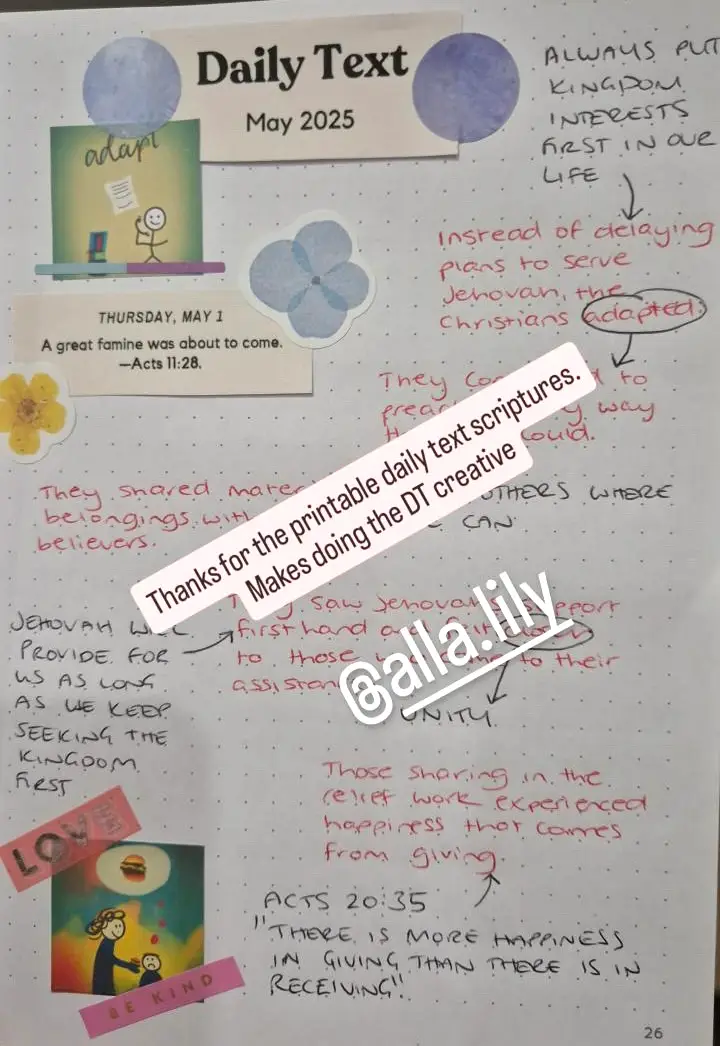 Daily Text
May 2025
adapt
ALWAYS PUT
KINGDOM
INTERESTS
FIRST IN OUR
LIFE
Instead of delaying
plans to serve
Jehovah, the
Christians adapted.
THURSDAY, MAY 1
A great famine was about to come.
—Acts 11:28.
They to
way
could.
Thanks for the printable daily text scriptures.
Makes doing the DT creative
They shared
belongings with
believers.
OTHERS WHERE
CAN
@alla.lily
saw Jehovah's support
firsthand and
to those to their
JEHOVAH WILL
PROVIDE FOR
US AS LONG
AS WE KEEP
SEEKING THE
KINGDOM
FIRST
UNITY
Those sharing in the
relief work experienced
happiness that comes
from giving.
LOVE
ACTS 20:35
"THERE IS MORE HAPPINESS
IN GIVING THAN THERE IS IN
RECEIVING".
BE KIND
26